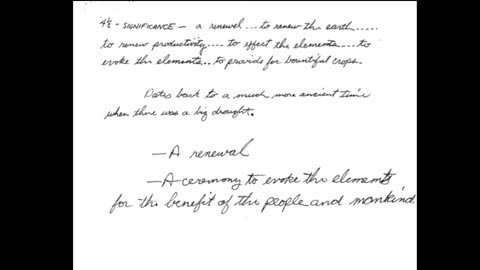 4/8 - SIGNIFICANCE - a renewal...to renew the earth.....
to renew productivity....to effect the elements....to
evoke the elements..to provide for bountiful crops.
Dates back to a much more ancient time
when there was a big drought.
-A renewal
-A ceremony to evoke the elements
for the benefit of the people and mankind.